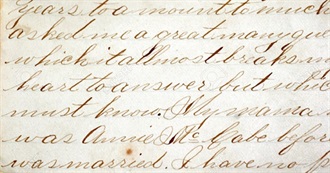 years to a mount to much
asked me a great many que
which it allmost breaks m
heart to answer but whic
must know. My mama
was Annie Mc Cabe befor
was married. I have no